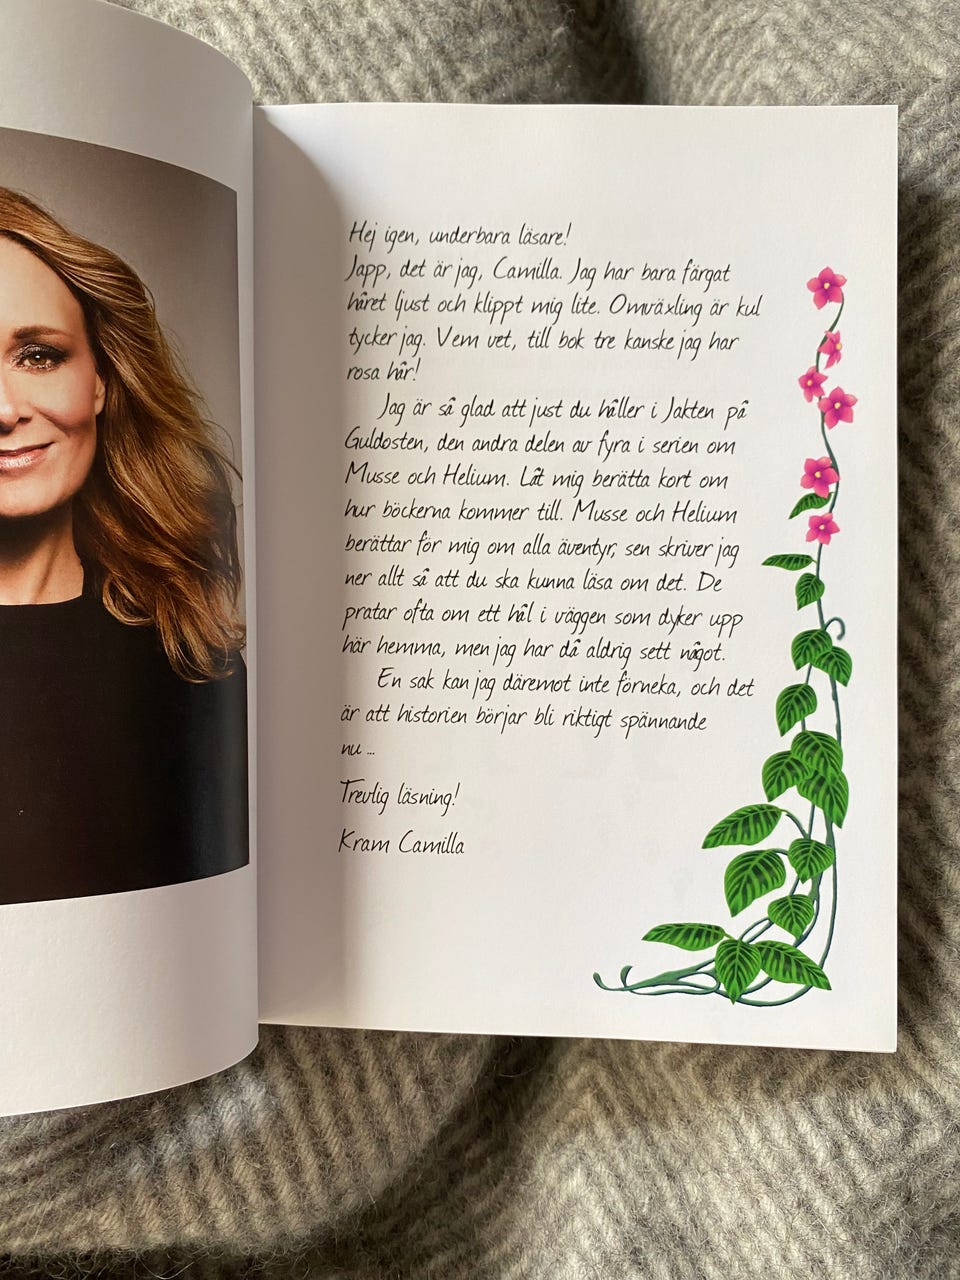 Hej igen, underbara läsare!
Japp, det är jag, Camilla. Jag har bara färgat
håret ljust och klippt mig lite. Omväxling är kul
tycker jag. Vem vet, till bok tre kanske jag har
rosa hår!
Jag är så glad att just du håller i Jakten på
Guldosten, den andra delen av fyra i serien om
Musse och Helium. Låt mig berätta kort om
hur böckerna kommer till. Musse och Helium
berättar för mig om alla äventyr, sen skriver jag
ner allt så att du ska kunna läsa om det. De
pratar ofta om ett hål i väggen som dyker upp
här hemma, men jag har då aldrig sett något.
En sak kan jag däremot inte förneka, och det
är att historien börjar bli riktigt spännande
nu ...
Trevlig läsning!
Kram Camilla